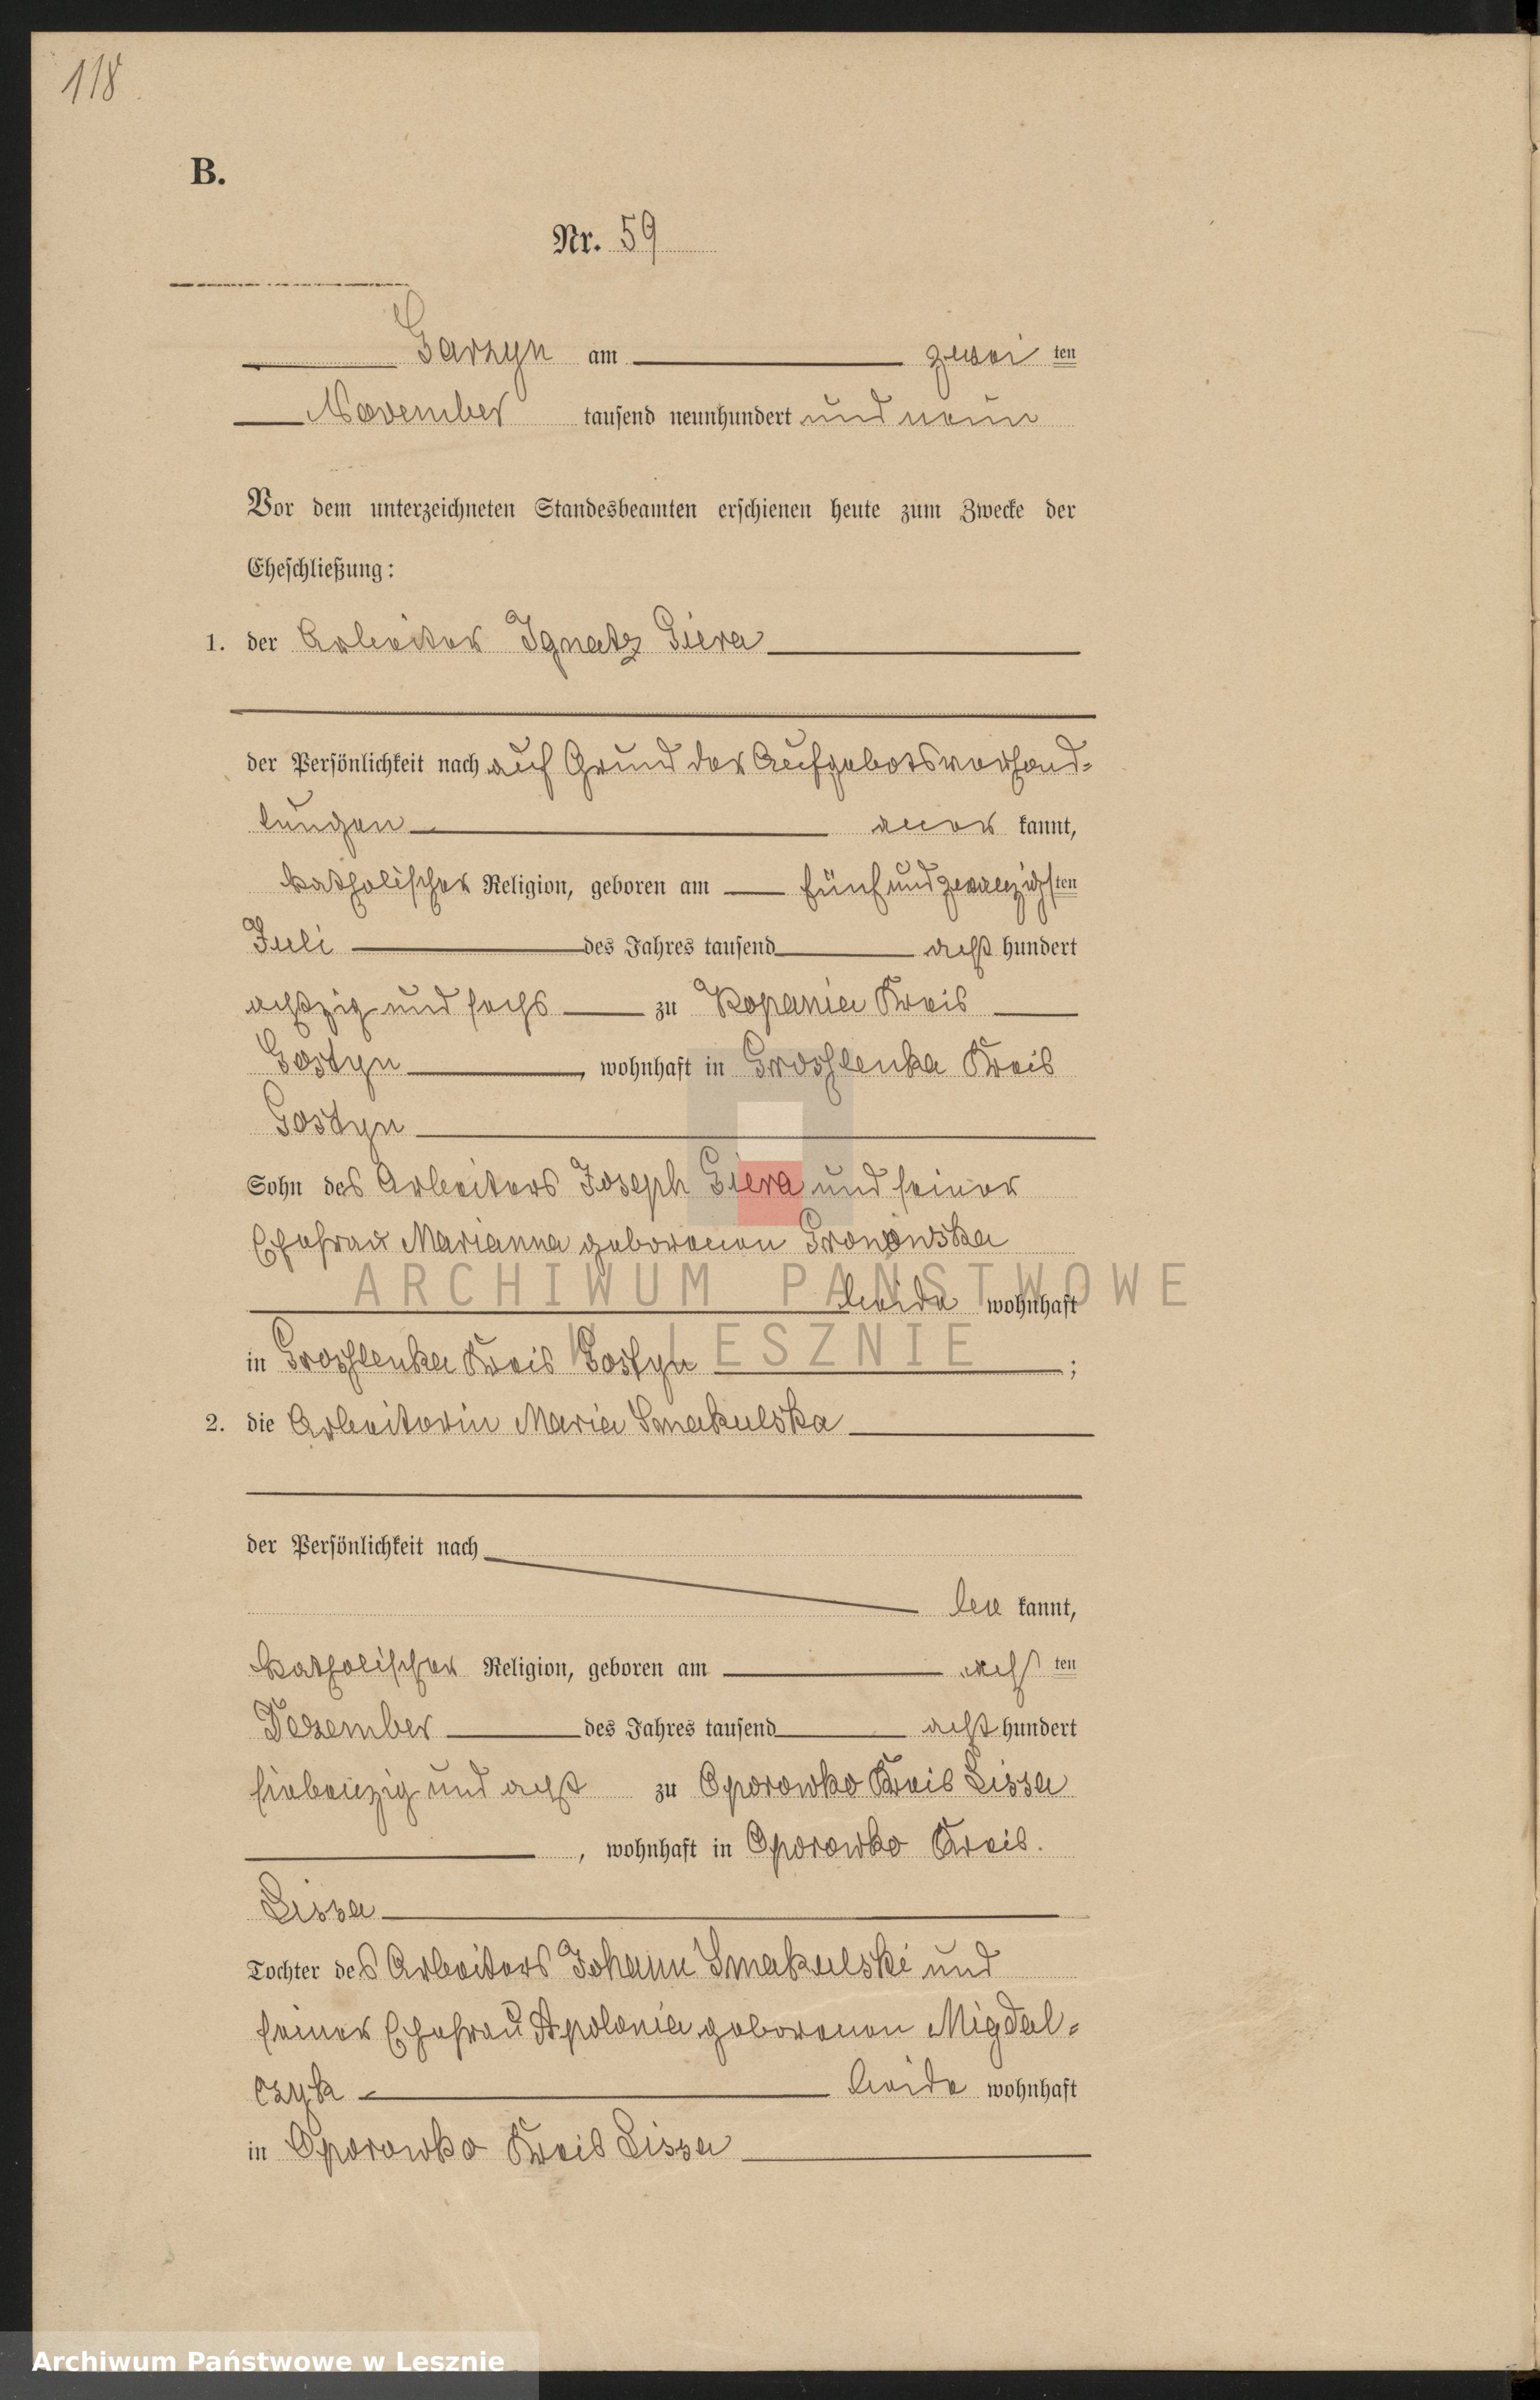 118
B.
Nr. 59
Garzyn am zwei ten
November tausend neunhundert und neun
Vor dem unterzeichneten Standesbeamten erschienen heute zum Zwecke der
Eheschließung:
1. der Arbeiter Ignatz Giera
der Persönlichkeit nach auf Grund der Aufgebotsverhand-
lungen aner kannt,
katholischer Religion, geboren am fünfundzwanzigsten
Juli des Jahres tausend acht hundert
achtzig und sechs zu Kopania Kreis
Gostyn, wohnhaft in Groshlenka Kreis
Gostyn
Sohn des Arbeiters Joseph Giera und seiner
Ehefrau Marianna geborenen Gronowska
beide wohnhaft
in Groshlenka Kreis Gostyn ;
2. die Arbeiterin Maria Smakulska
der Persönlichkeit nach
be kannt,
katholischer Religion, geboren am acht ten
Dezember des Jahres tausend acht hundert
siebenzig und acht zu Oporowko Kreis Lissa
, wohnhaft in Oporowko Kreis.
Lissa
Tochter des Arbeiters Johann Smakulski und
seiner Ehefrau Apolonia geborenen Migdal-
czyk beide wohnhaft
in Oporowko Kreis Lissa
ARCHIWUM PAŃSTWOWE
W LESZNIE
Archiwum Państwowe w Lesznie